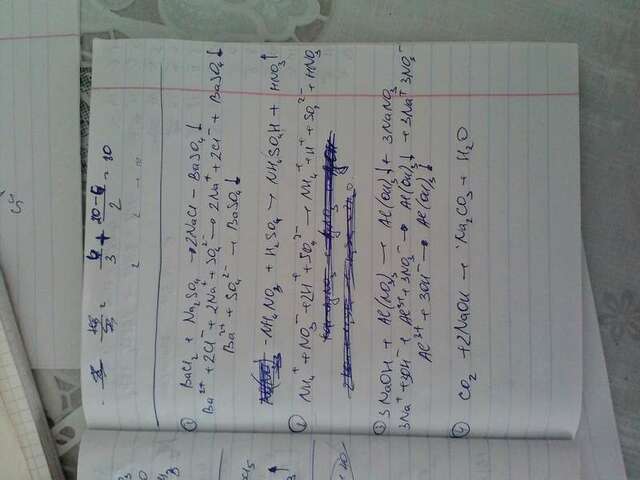 4/3 + 20-4/2 = 10
① BaCl₂ + Na₂SO₄ → 2NaCl - BaSO₄↓
Ba²⁺ + 2Cl⁻ + 2Na⁺ + SO₄²⁻ → 2Na⁺ + 2Cl⁻ + BaSO₄↓
Ba²⁺ + SO₄²⁻ → BaSO₄↓
- NH₄NO₃ + H₂SO₄ → NH₄SO₄H + HNO₃↑
② NH₄⁺ + NO₃⁻ + 2H⁺ + SO₄²⁻ → NH₄⁺ + H⁺ + SO₄²⁻ + HNO₃
③ 3NaOH + Al(NO₃)₃ → Al(OH)₃↓ + 3NaNO₃
3Na⁺ + 3OH⁻ + Al³⁺ + 3NO₃⁻ → Al(OH)₃↓ + 3Na⁺ 3NO₃⁻
Al³⁺ + 3OH⁻ → Al(OH)₃↓
④ CO₂ + 2NaOH → Na₂CO₃ + H₂O